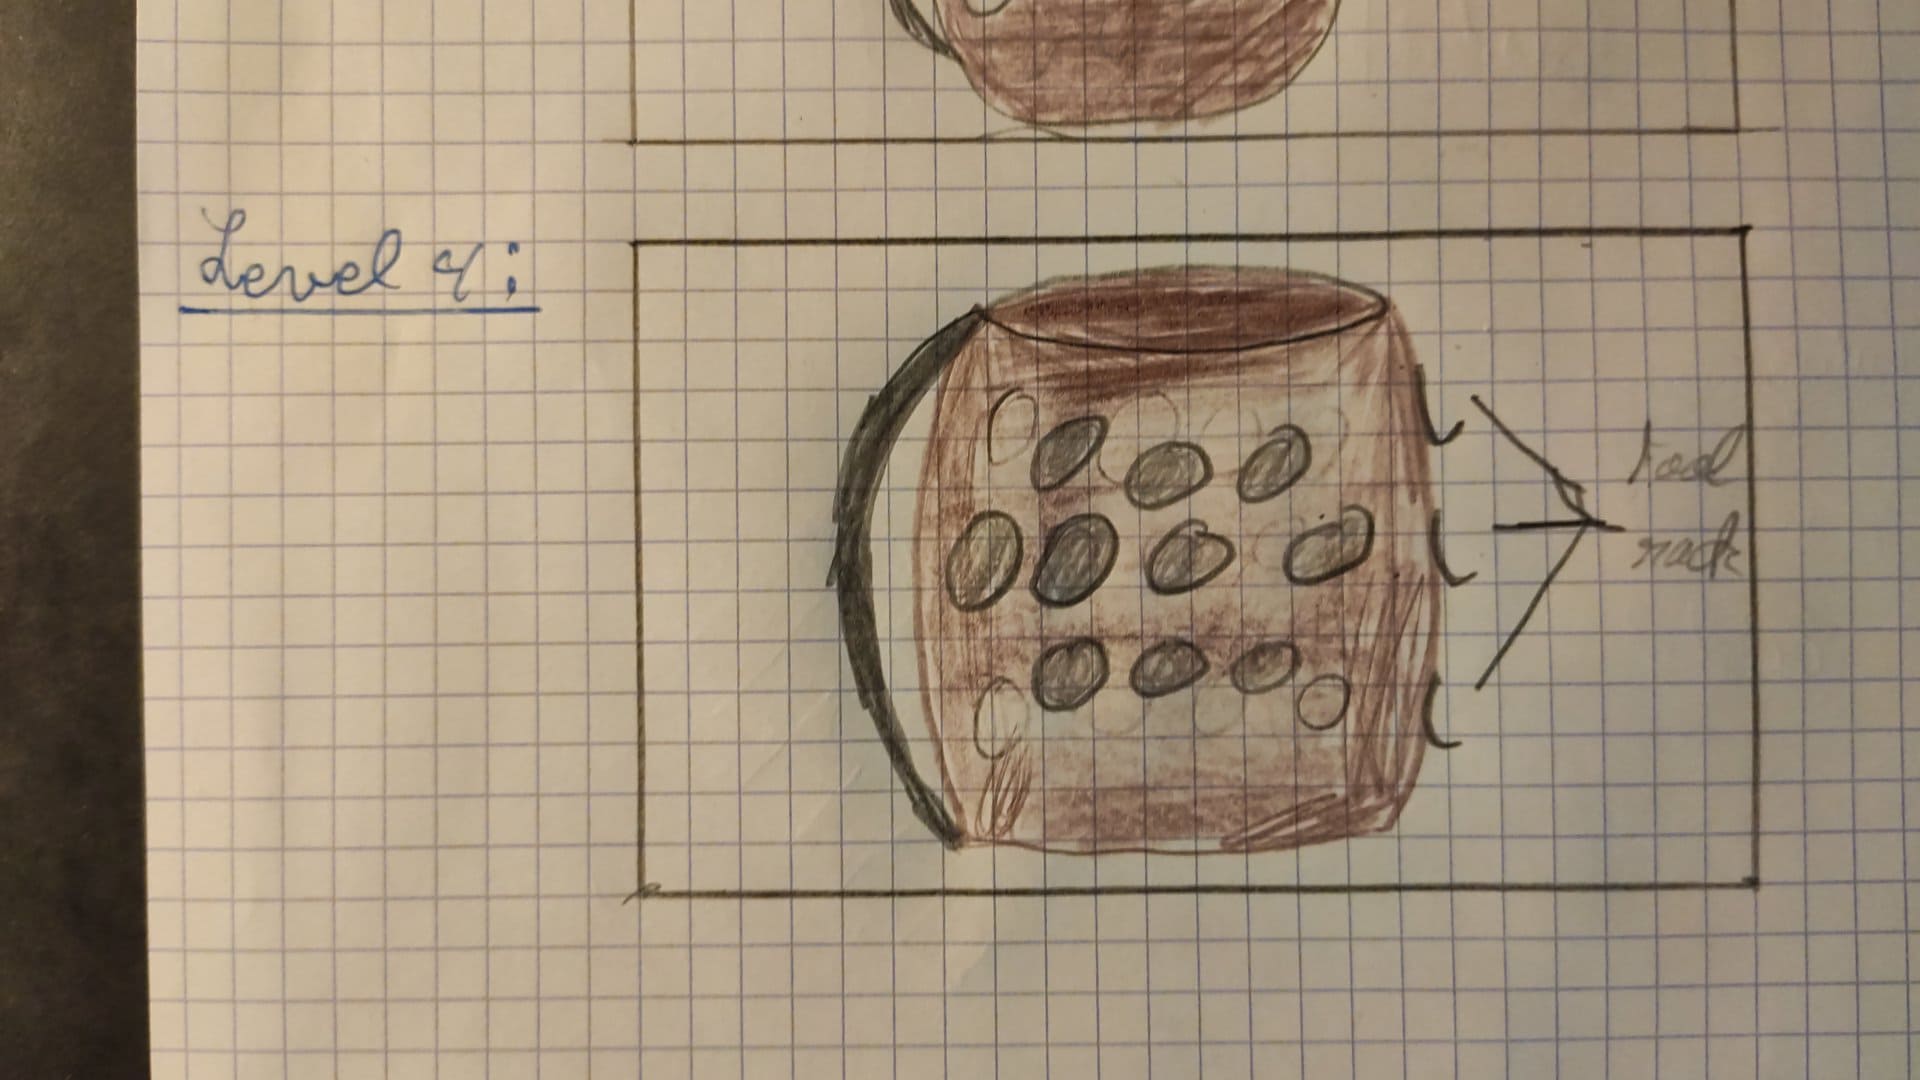 Level 4:
tool
rack